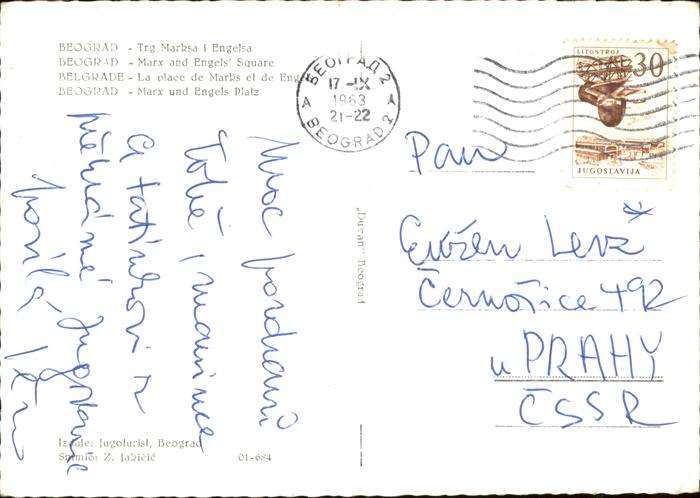 BEOGRAD - Trg Marksa i Engelsa
BEOGRAD - Marx and Engels' Square
BELGRADE - La place de Marks et de Eng
BEOGRAD - Marx und Engels Platz
БЕОГРАД 2
17-IX
1963
21-22
A A
BEOGRAD 2
LITOSTROJ
30
JUGOSLAVIJA
Moc pozdravů
Tobě, mamince
a tatínkovi z
překrásné Jugoslávie
posílá
"Dunav" Beograd
Pan
Evžen Levž
Černošice 492
u PRAHY
ČSSR
Izdaje: Jugoturist, Beograd
Snimio: Z. Jabičić
01-684